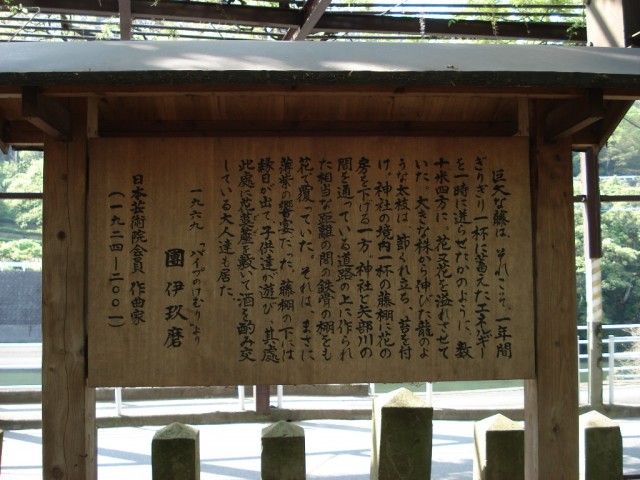 巨大な藤は、それこそ、一年間
ぎりぎり一杯に蓄えたエネルギー
を一時に迸らせたかのように、数
十米四方に、花又花を溢れさせて
いた。大きな株から伸びた龍のよ
うな太枝は、節くれ立ち、苔を付
け、神社の境内一杯の藤棚に花の
房を下げる一方、神社と矢部川の
間を通っている道路の上に作られ
た相当な距離の間の鉄骨の棚をも
花で覆っていた。それは、まさに
藤紫の饗宴だった。藤棚の下には
縁日が出て、子供達が遊び、其處
此處に花茣蓙を敷いて酒を酌み交
している大人達も居た。
一九六九 "パイプのけむり"より
團 伊玖磨
日本芸術院会員 作曲家
(一九二四―二〇〇一)